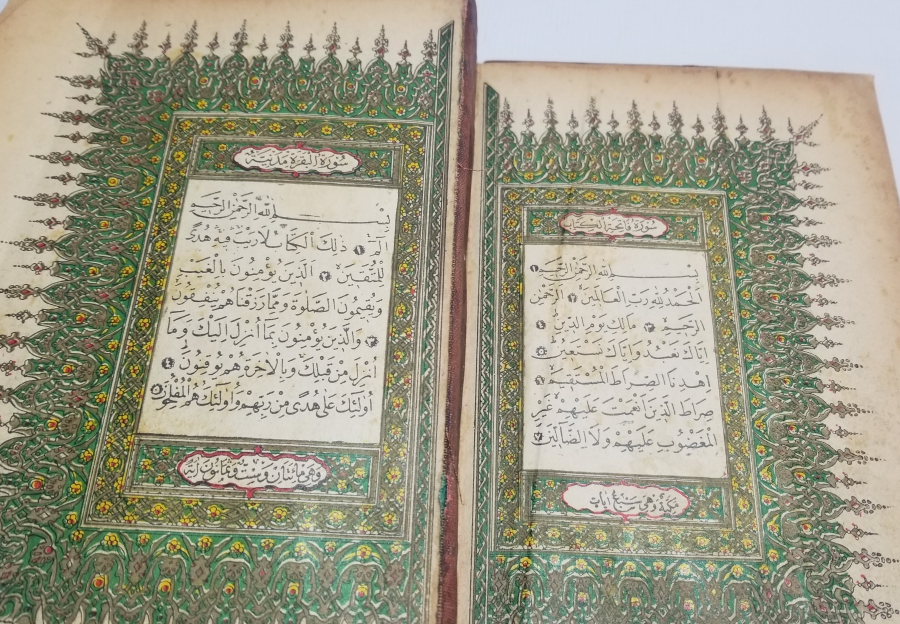 سورة فاتحة الكتاب
بسم الله الرحمن الرحيم ١
الحمد لله رب العالمين ٢ الرحمن
الرحيم ٣ مالك يوم الدين ٤
اياك نعبد واياك نستعين ٥
اهدنا الصراط المستقيم ٦
صراط الذين انعمت عليهم غير
المغضوب عليهم ولا الضالين ٧
مكية وهي سبع ايات
سورة البقرة مدنية
بسم الله الرحمن الرحيم
الم ١ ذلك الكتاب لا ريب فيه هدى
للمتقين ٢ الذين يؤمنون بالغيب
ويقيمون الصلوة ومما رزقناهم ينفقون
٣ والذين يؤمنون بما انزل اليك وما
انزل من قبلك وبالاخرة هم يوقنون ٤
اولئك على هدى من ربهم واولئك هم المفلحون ٥
وهي مائتان وست وثمانون اية